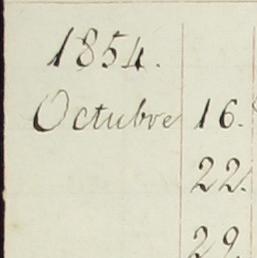 1854.
Octubre 16.
22.
29.